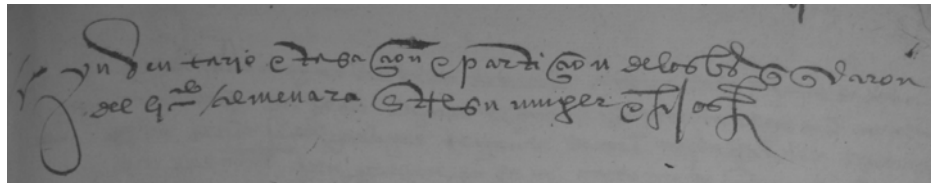 ynventario e tasaçion e partiçion delos bs q qdaron
del liçdo almenara Entre su muger e hijos